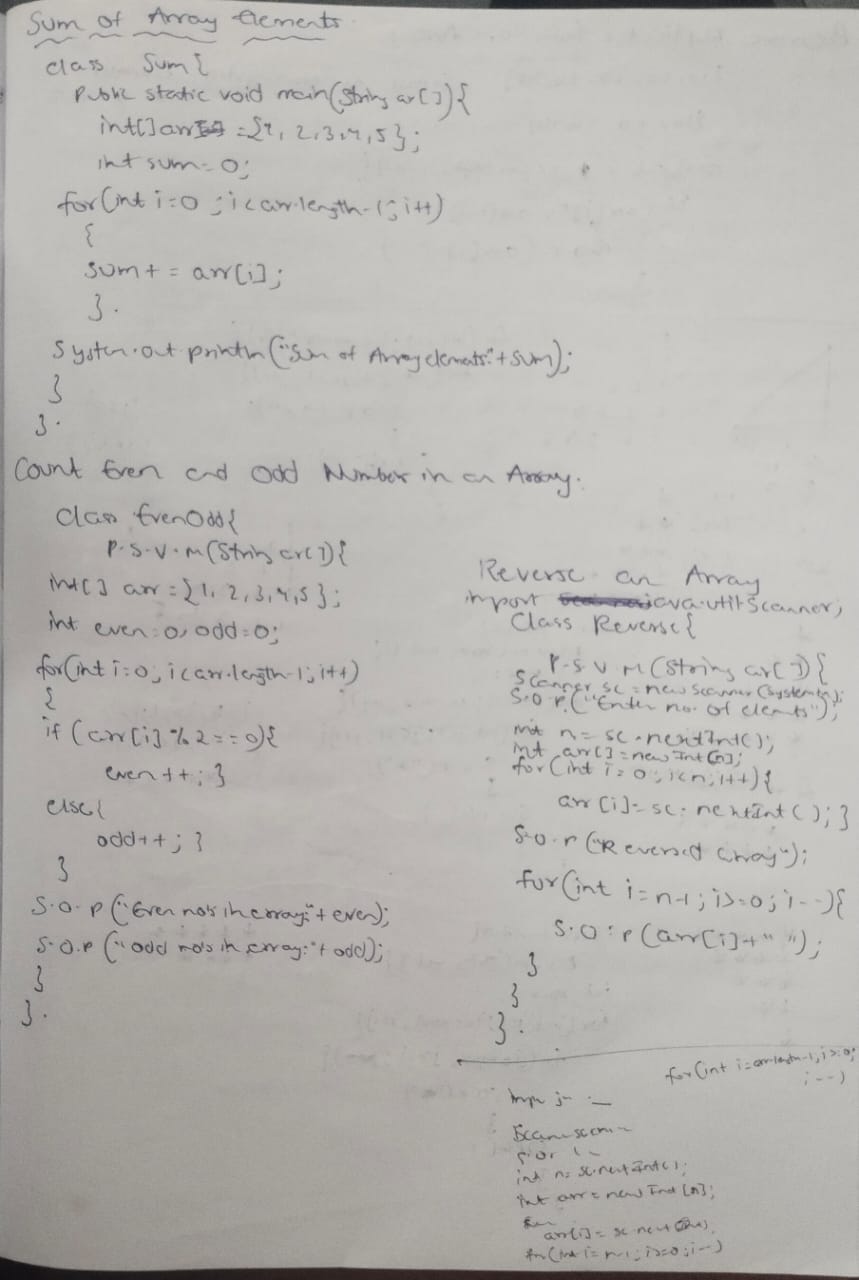 Sum of Array Elements
class Sum{
Public static void main(String ar[]){
int[] arr = {1, 2, 3, 4, 5};
int sum = 0;
for(int i=0 ; i<arr.length-1; i++)
{
sum+ = arr[i];
}.
System.out.println("Sum of Array elements:"+sum);
}
}.
Count Even and Odd Number in an Array.
Class EvenOdd{
P.S.V.M(String ar[]){
int[] arr = {1, 2, 3, 4, 5};
int even=0, odd=0;
for(int i=0; i<arr.length-1; i++)
{
if (arr[i] % 2 == 0){
even++; }
else{
odd++; }
}
S.O.P("Even no's in array:"+ even);
S.O.P("odd no's in array:"+ odd);
}
}.
Reverse an Array
import java.util.Scanner;
Class Reverse{
P.S.V.M(String ar[]){
Scanner sc = new Scanner(System.in);
S.O.P.("Enter no. of elements");
int n = sc.nextInt();
int arr[] = new Int[n];
for(int i=0; i<n; i++){
arr[i]= sc.nextInt(); }
S.O.P("Reversed array");
for(int i=n-1; i>=0; i--){
S.O.P(arr[i]+" ");
}
}
}.
for(int i=arr.length-1, i>=0;
; --)
int n= sc.nextInt();
int arr = new Int[n];
arr[i] = sc.next
for(int i=n-1; i>=0; i--)